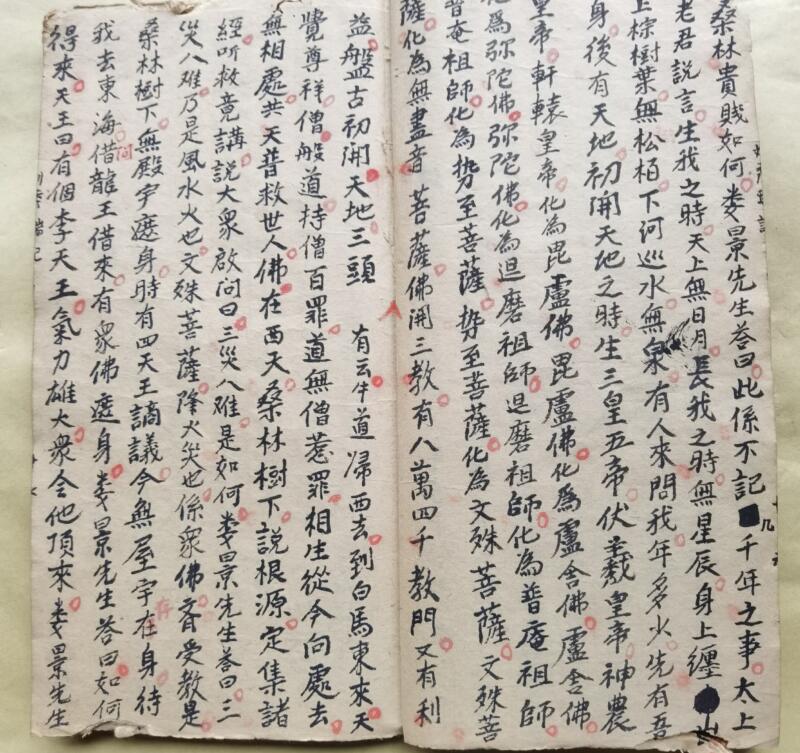 桑林貴賤如何娄景先生答曰此係不記千年之事太上
老君説言生我之時天上無日月長我之時無星辰身上纏
上棕樹葉無松柏下河巡水無泉有人來問我年多少先有吾
身後有天地初開天地之時生三皇五帝伏羲皇帝神農
皇帝軒轅皇帝化為毘盧佛毘盧佛化為盧舍佛盧舍佛
化為弥陀佛弥陀佛化為祖師化為普庵祖師
普庵祖師化為势至菩薩势至菩薩化為文殊菩薩文殊菩
薩化為無盡音菩薩佛開三教有八萬四千教門又有利
益盤古初開天地三頭 有云牛道歸西去到白馬東來天
覺尊祥僧般道持僧百罪道無僧惹罪相生從今向處去
無相處共天普救世人佛在西天桑林樹下説根源定集諸
經听救竟講説大衆啟問曰三災八难是如何娄景先生答曰三
災八难乃是風水火也文殊菩薩降火災也係衆佛齊受教是
桑林樹下無殿宇遮身時有四天王議今無屋宇在身待
我去東海借龍王借來有衆佛遮身娄景先生答曰如何
得來天王曰有個李天王氣力雄大衆令他頂來娄景先生